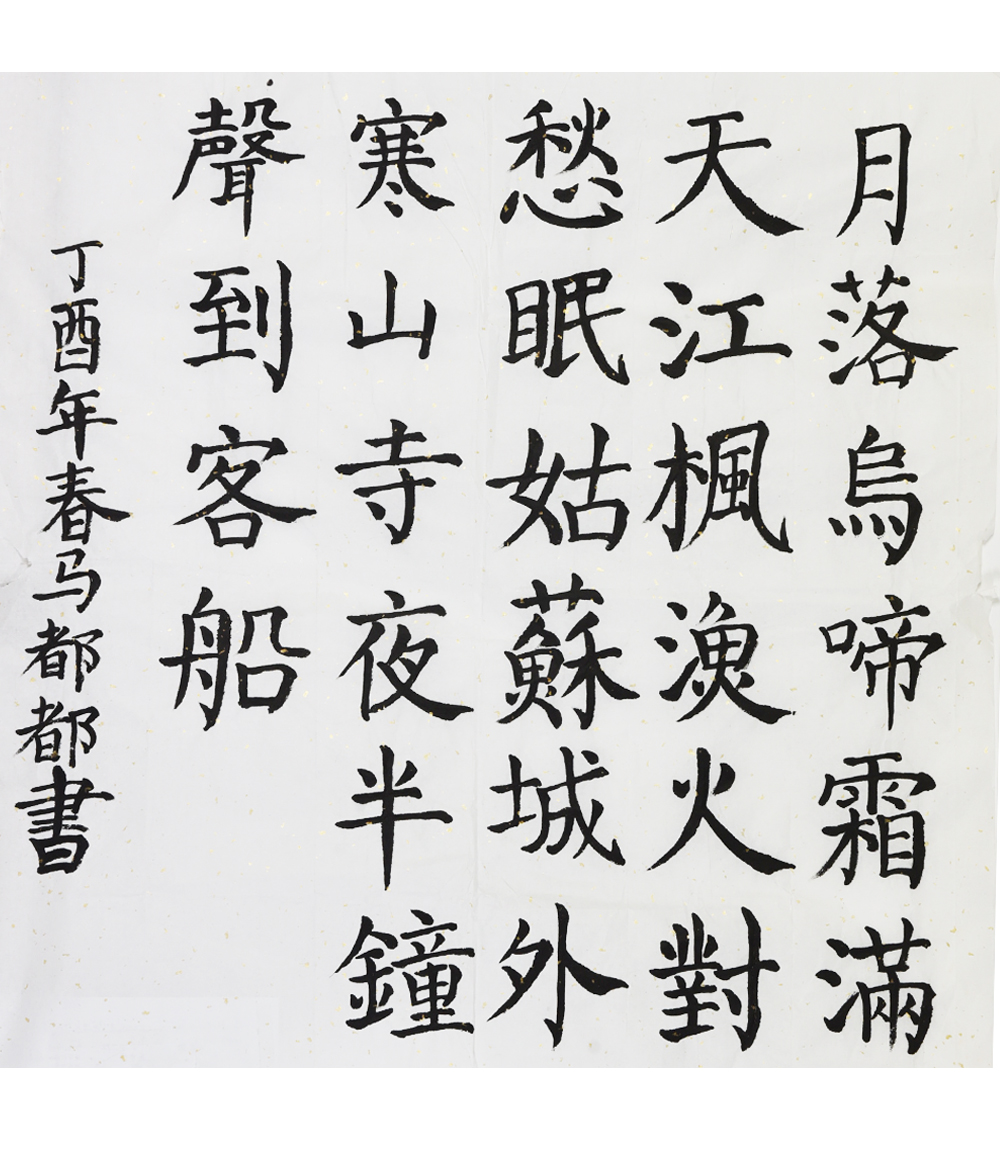 月落烏啼霜滿
天江楓漁火對
愁眠姑蘇城外
寒山寺夜半鐘
聲到客船
丁酉年春马都都書